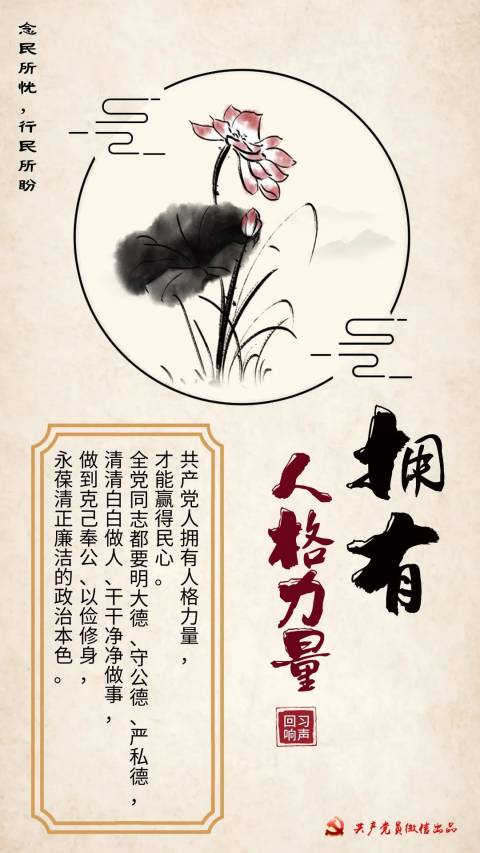 念民所忧，行民所盼
拥有
人格力量
习声
回响
共产党人拥有人格力量，
才能赢得民心。
全党同志都要明大德、守公德、严私德，
清清白白做人、干干净净做事，
做到克己奉公、以俭修身，
永葆清正廉洁的政治本色。
共产党员微信出品